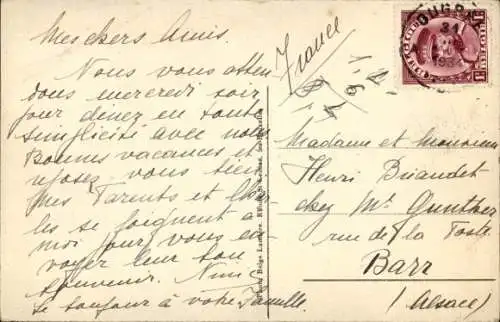 Meickers Amis.
Nous vous atten
dons mercredi soir
pour diner en toute
simplicité avec nous
Bonnes vacances et
reposez vous bien.
Mes Parents et Char
les se joignent à
moi pour vous en
voyer leur bon
souvenir. Nini
se joint à votre famille.
France
Madame et Monsieur
Henri Briaudet
chez Mr Gunther
rue de la Poste
Barr
(Alsace)